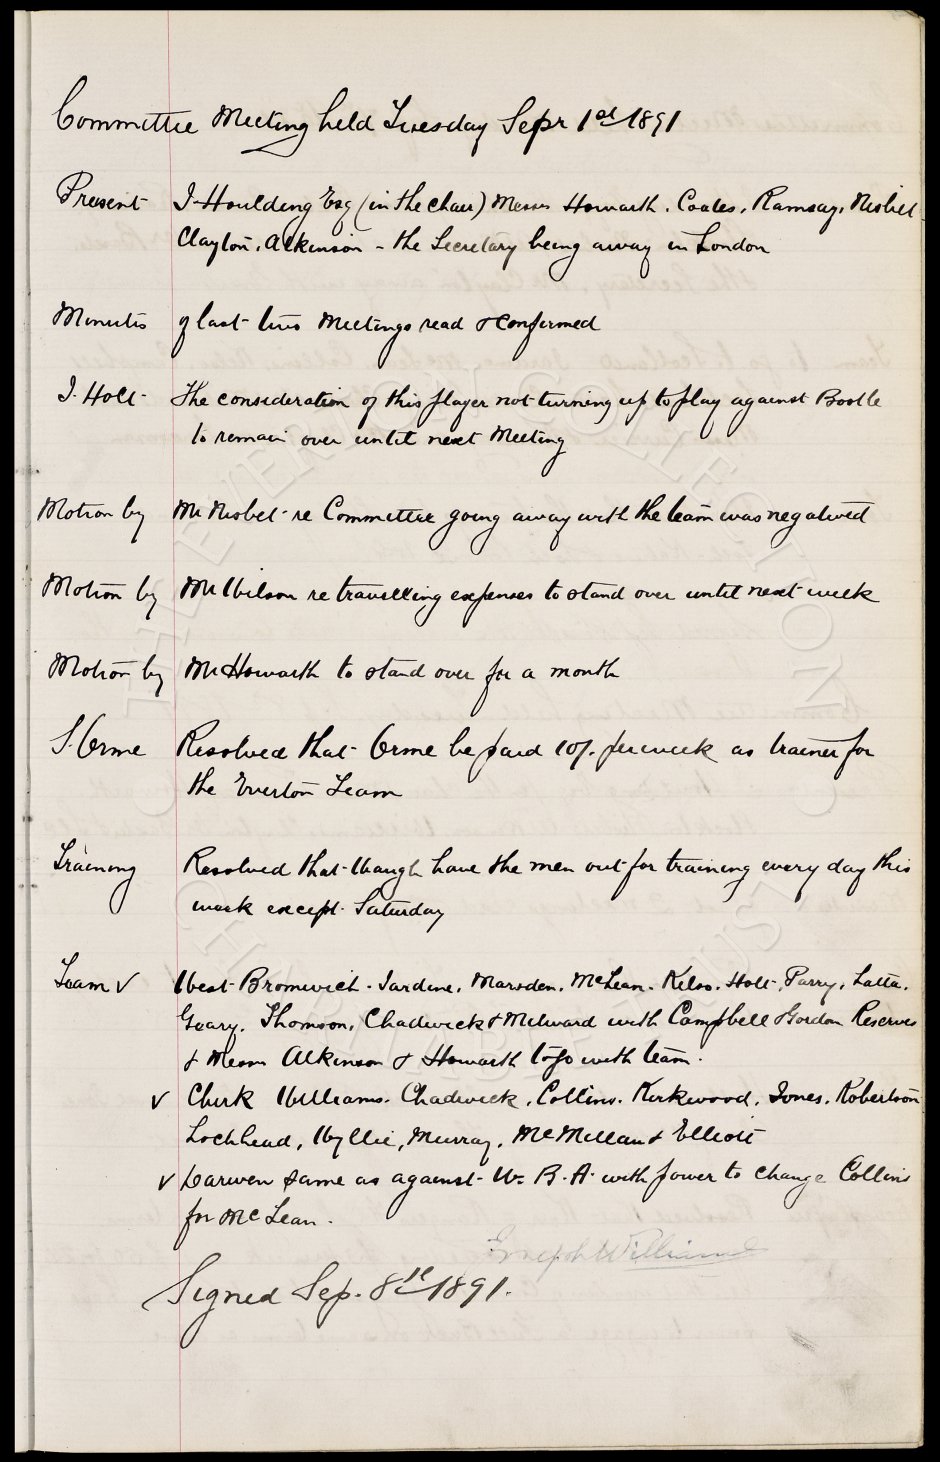 Committee Meeting held Tuesday Sepr 1st 1891
Present J. Houlding Esq (in the chair) Messrs Howarth, Coates, Ramsay, Nisbet
Clayton, Atkinson - the Secretary being away in London
Minutes of last two Meetings read & confirmed
J. Holt - The consideration of this player not turning up to play against Bootle
to remain over until next Meeting
Motion by Mr Nisbet re Committee going away with the team was negatived
Motion by Mr Wilson re travelling expenses to stand over until next week
Motion by Mr Howarth to stand over for a month
S. Orme Resolved that Orme be paid 10/- per week as trainer for
the Everton Team
Training Resolved that Waugh have the men out for training every day this
week except Saturday
Team ✓ West Bromwich - Jardine, Marsden, McLean, Kelso, Holt, Parry, Latta,
Geary, Thomson, Chadwick & Milward with Campbell & Gordon Reserves
& Messrs Atkinson & Howarth to go with team.
✓ Chirk Williams, Chadwick, Collins, Kirkwood, Jones, Robertson
Lochhead, Wyllie, Murray, McMillan & Elliott
✓ Darwen same as against W. B. A. with power to change Collins
for McLean.
Joseph Williams
Signed Sep. 8th 1891.
THE EVERTON COLLECTION
CHARITABLE TRUST